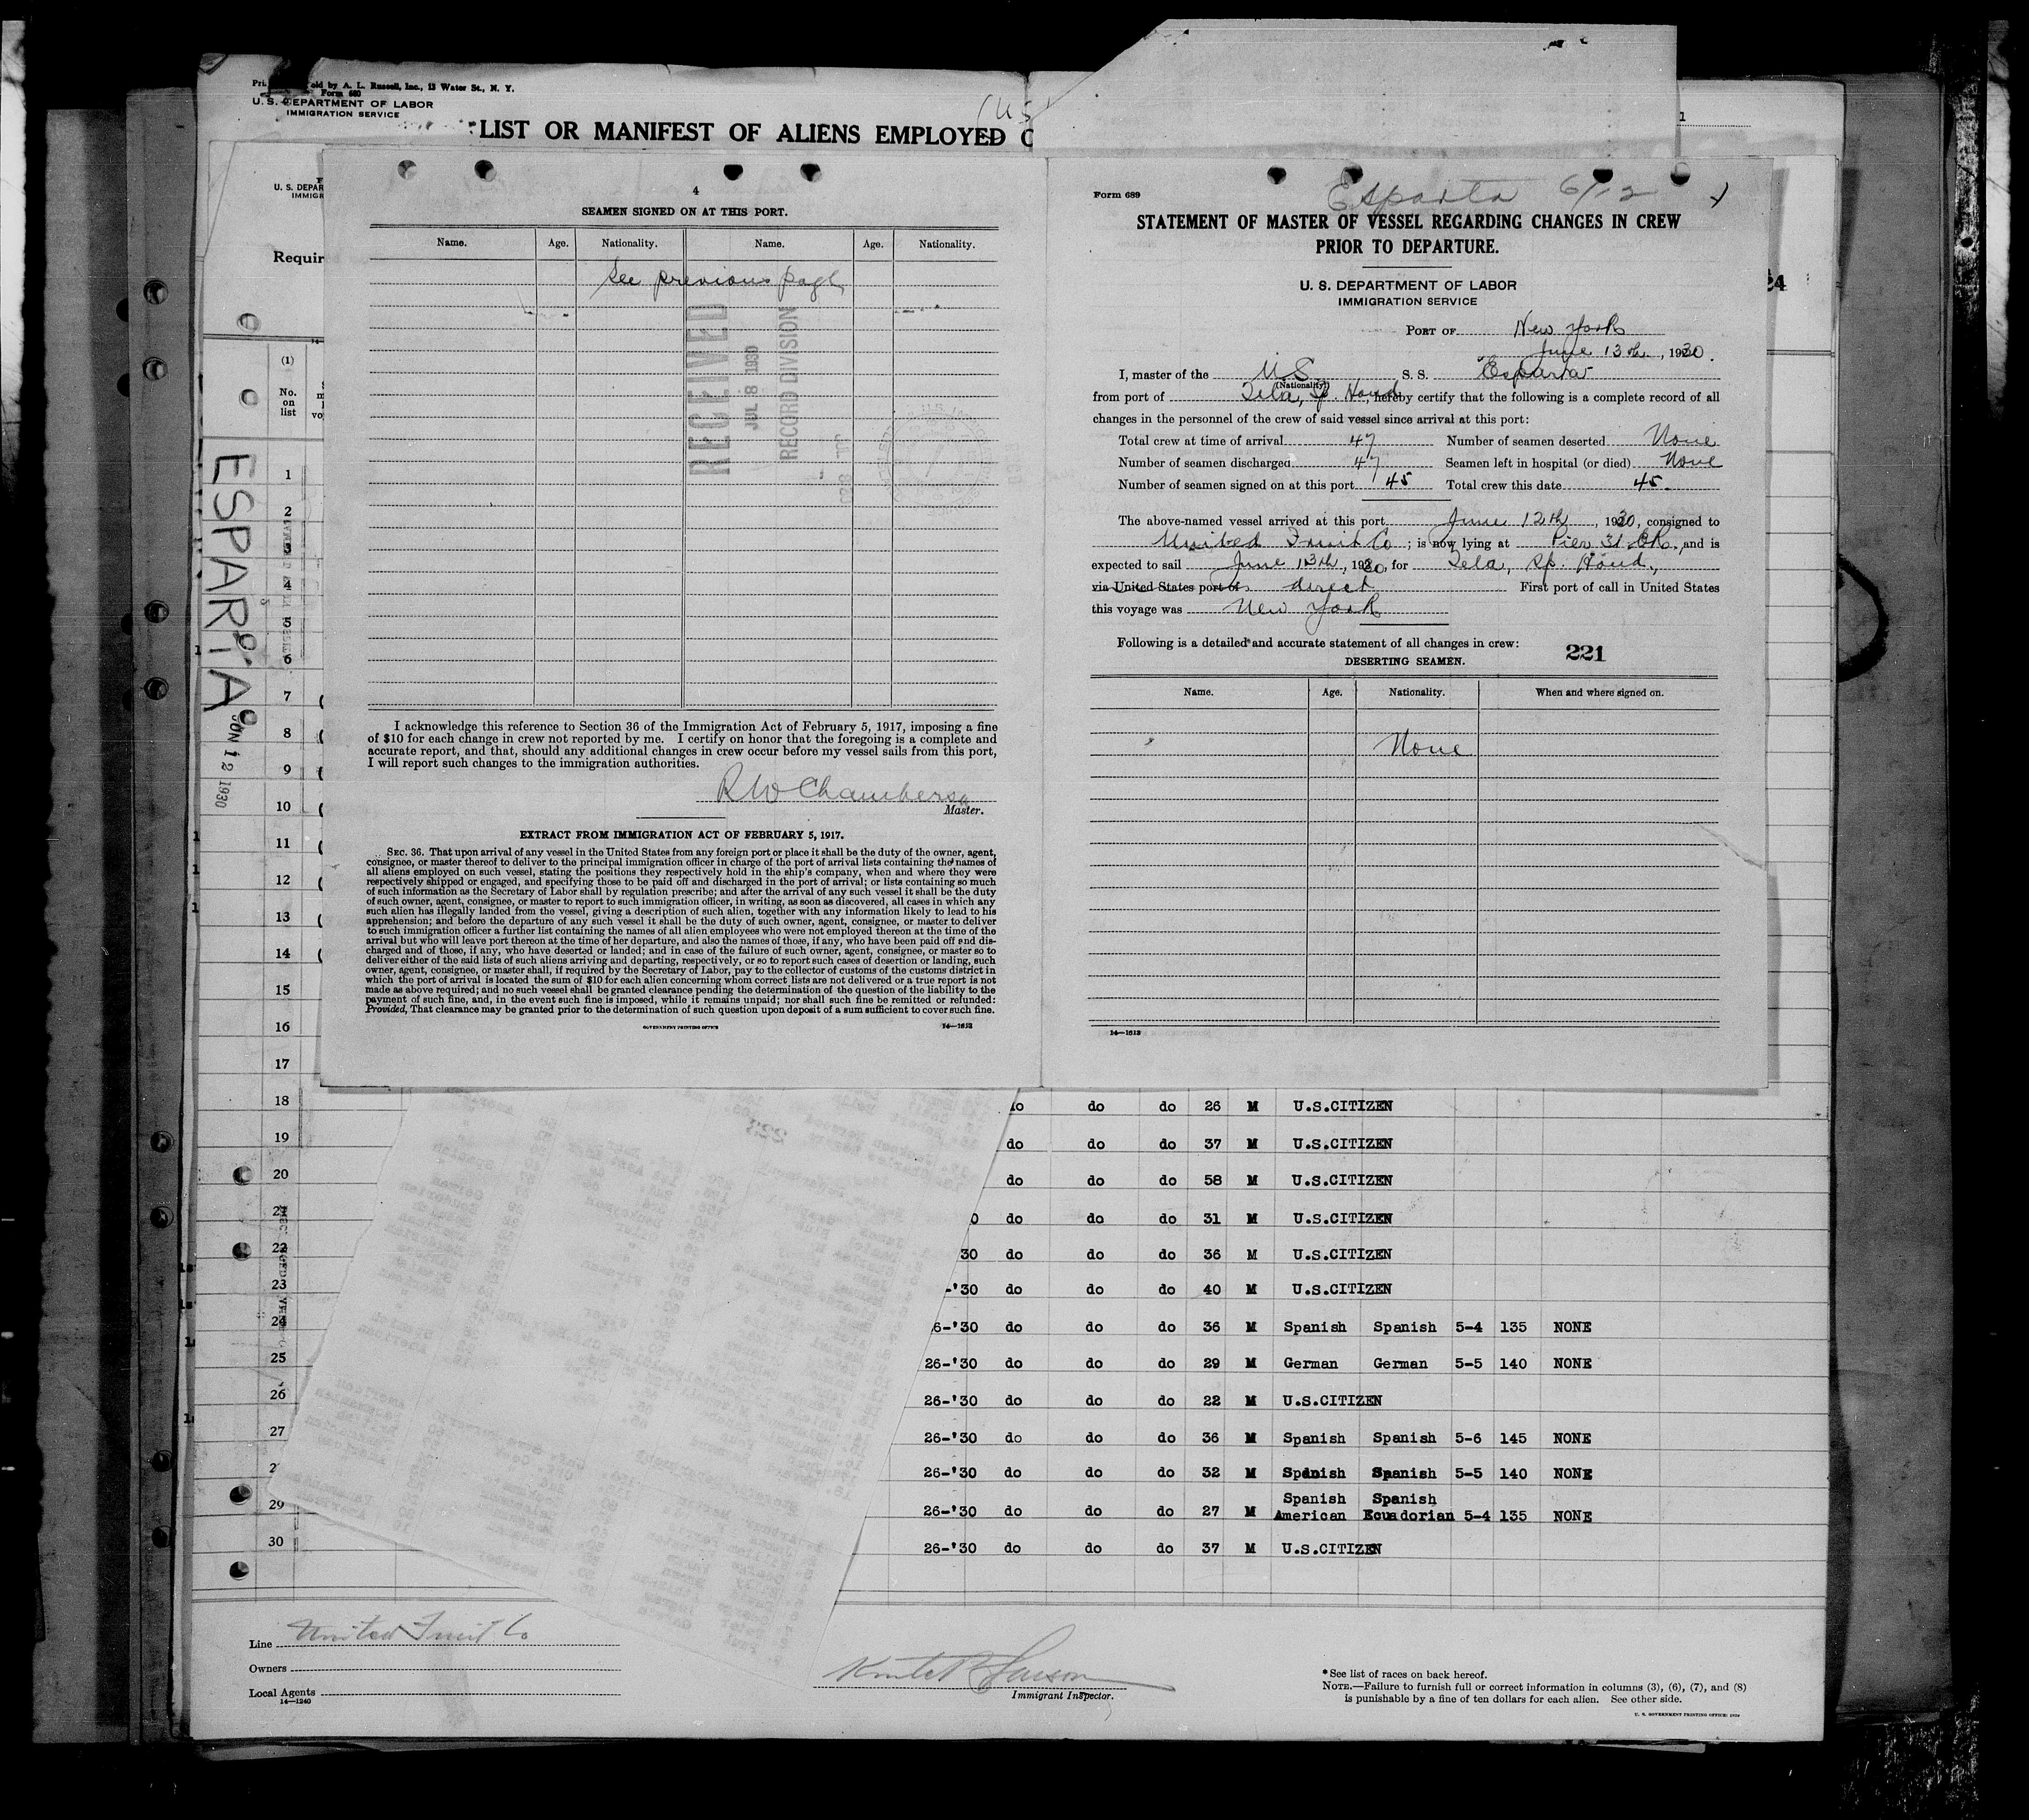 Form 680
U. S. DEPARTMENT OF LABOR
IMMIGRATION SERVICE
LIST OR MANIFEST OF ALIENS EMPLOYED
4
SEAMEN SIGNED ON AT THIS PORT.
Name. Age. Nationality. Name. Age. Nationality.
See previous page
RECEIVED
JUL 8 1930
RECORD DIVISION
I acknowledge this reference to Section 36 of the Immigration Act of February 5, 1917, imposing a fine
of $10 for each change in crew not reported by me. I certify on honor that the foregoing is a complete and
accurate report, and that, should any additional changes in crew occur before my vessel sails from this port,
I will report such changes to the immigration authorities.
R W Chambers
Master.
EXTRACT FROM IMMIGRATION ACT OF FEBRUARY 5, 1917.
SEC. 36. That upon arrival of any vessel in the United States from any foreign port or place it shall be the duty of the owner, agent,
consignee, or master thereof to deliver to the principal immigration officer in charge of the port of arrival lists containing the names of
all aliens employed on such vessel, stating the positions they respectively hold in the ship's company, when and where they were
respectively shipped or engaged, and specifying those to be paid off and discharged in the port of arrival; or lists containing so much
of such information as the Secretary of Labor shall by regulation prescribe; and after the arrival of any such vessel it shall be the duty
of such owner, agent, consignee, or master to report to such immigration officer, in writing, as soon as discovered, all cases in which any
such alien has illegally landed from the vessel, giving a description of such alien, together with any information likely to lead to his
apprehension; and before the departure of any such vessel it shall be the duty of such owner, agent, consignee, or master to deliver
to such immigration officer a further list containing the names of all alien employees who were not employed thereon at the time of the
arrival but who will leave port thereon at the time of her departure, and also the names of those, if any, who have been paid off and dis-
charged and of those, if any, who have deserted or landed; and in case of the failure of such owner, agent, consignee, or master so to
deliver either of the said lists of such aliens arriving and departing, respectively, or so to report such cases of desertion or landing, such
owner, agent, consignee, or master shall, if required by the Secretary of Labor, pay to the collector of customs of the customs district in
which the port of arrival is located the sum of $10 for each alien concerning whom correct lists are not delivered or a true report is not
made as above required; and no such vessel shall be granted clearance pending the determination of the question of the liability to the
payment of such fine, and, in the event such fine is imposed, while it remains unpaid; nor shall such fine be remitted or refunded:
Provided, That clearance may be granted prior to the determination of such question upon deposit of a sum sufficient to cover such fine.
GOVERNMENT PRINTING OFFICE
Esparta 6/12
Form 689
STATEMENT OF MASTER OF VESSEL REGARDING CHANGES IN CREW
PRIOR TO DEPARTURE.
U. S. DEPARTMENT OF LABOR
IMMIGRATION SERVICE
PORT OF New York
June 13th, 1930.
I, master of the U S S. S. Esparta
(Nationality)
from port of Tela, Sp. Hond, hereby certify that the following is a complete record of all
changes in the personnel of the crew of said vessel since arrival at this port:
Total crew at time of arrival 47 Number of seamen deserted None
Number of seamen discharged 47 Seamen left in hospital (or died) None
Number of seamen signed on at this port 45 Total crew this date 45.
The above-named vessel arrived at this port June 12th, 1930, consigned to
United Fruit Co; is now lying at Pier 31 , and is
expected to sail June 13th, 1930, for Tela, Sp. Hond.,
via United States port of direct First port of call in United States
this voyage was New York
Following is a detailed and accurate statement of all changes in crew:
221
DESERTING SEAMEN.
Name. Age. Nationality. When and where signed on.
None
14—1613
ESPARTA
JUN 12 1930
(1)
No.
on
list
1
2
3
4
5
6
7
8
9
10
11
12
13
14
15
16
17
18 do do 26 M U.S.CITIZEN
19 do do do 37 M U.S.CITIZEN
20 do do do 58 M U.S.CITIZEN
21 do do do 31 M U.S.CITIZEN
22 30 do do do 36 M U.S.CITIZEN
23 -'30 do do do 40 M U.S.CITIZEN
24 6-'30 do do do 36 M Spanish Spanish 5-4 135 NONE
25 26-'30 do do do 29 M German German 5-5 140 NONE
26 26-'30 do do do 22 M U.S.CITIZEN
27 26-'30 do do do 36 M Spanish Spanish 5-6 145 NONE
26-'30 do do do 32 M Spanish Spanish 5-5 140 NONE
Spanish Spanish
29 26-'30 do do do 27 M American Ecuadorian 5-4 135 NONE
30 26-'30 do do do 37 M U.S.CITIZEN
Line United Fruit Co
Owners
Local Agents
14—1240
Immigrant Inspector.
* See list of races on back hereof.
NOTE.—Failure to furnish full or correct information in columns (3), (6), (7), and (8)
is punishable by a fine of ten dollars for each alien. See other side.